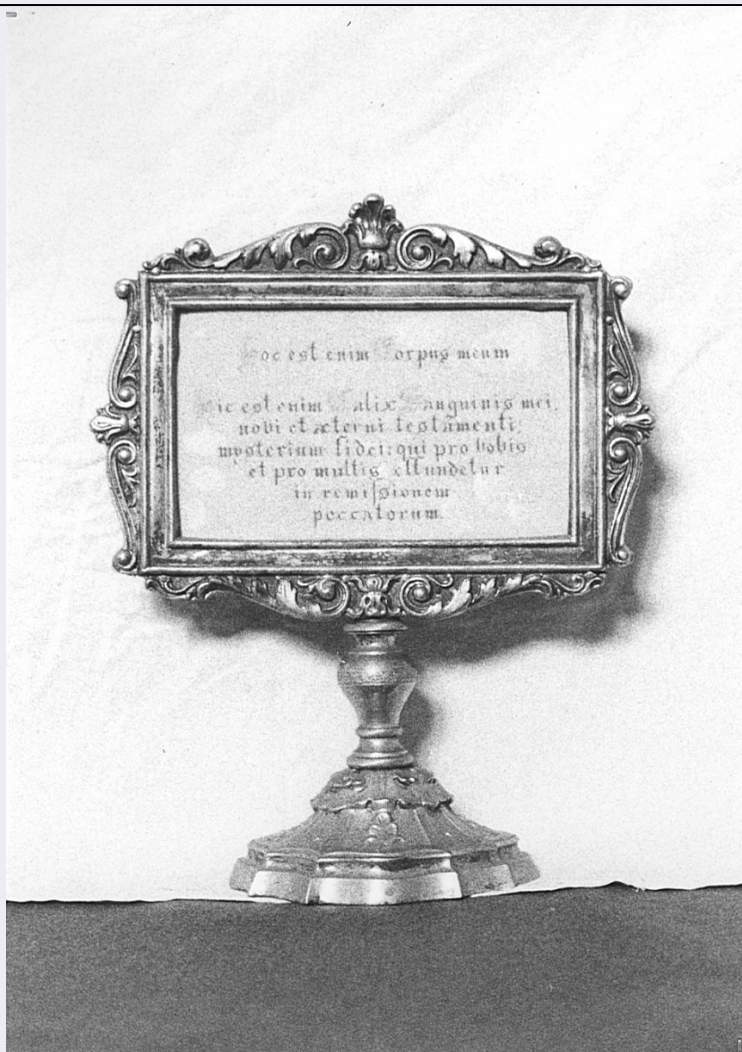 Hoc est enim Corpus meum
Hic est enim Calix Sanguinis mei,
nobi et æterni testamenti:
mysterium fidei: qui pro vobis
et pro multis effundetur
in remissionem
peccatorum.